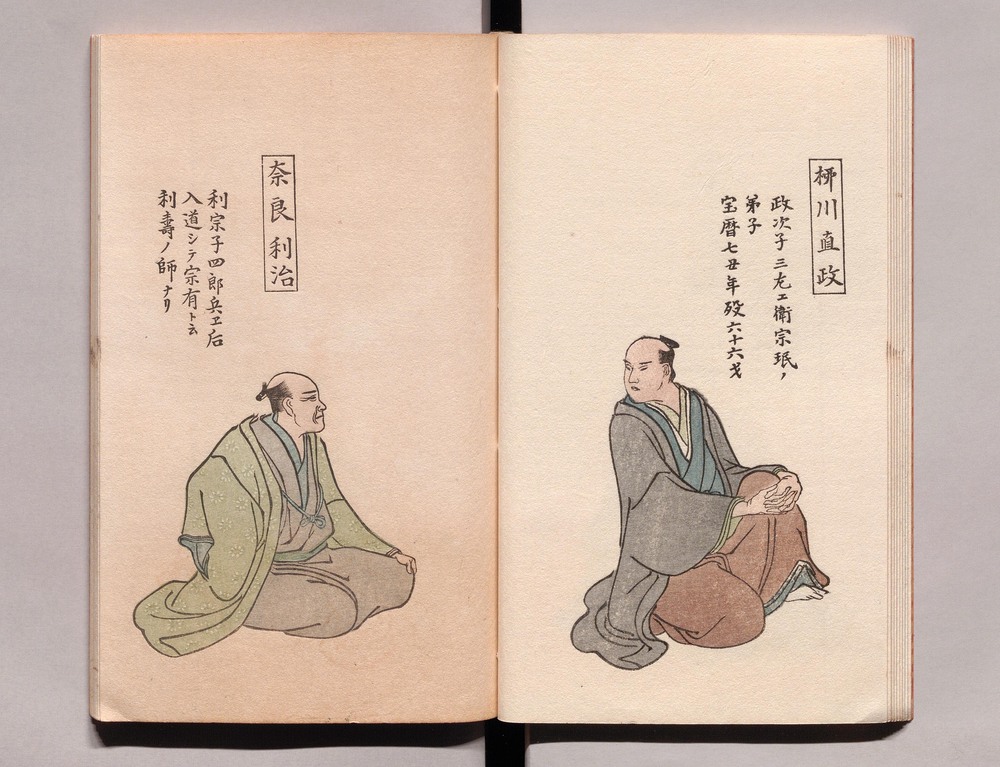 柳川直政
政次子三左エ衛宗珉ノ
弟子
宝暦七丑年歿六十六才
奈良利治
利宗子四郎兵ヱ后
入道シテ宗有ト云
利壽ノ師ナリ